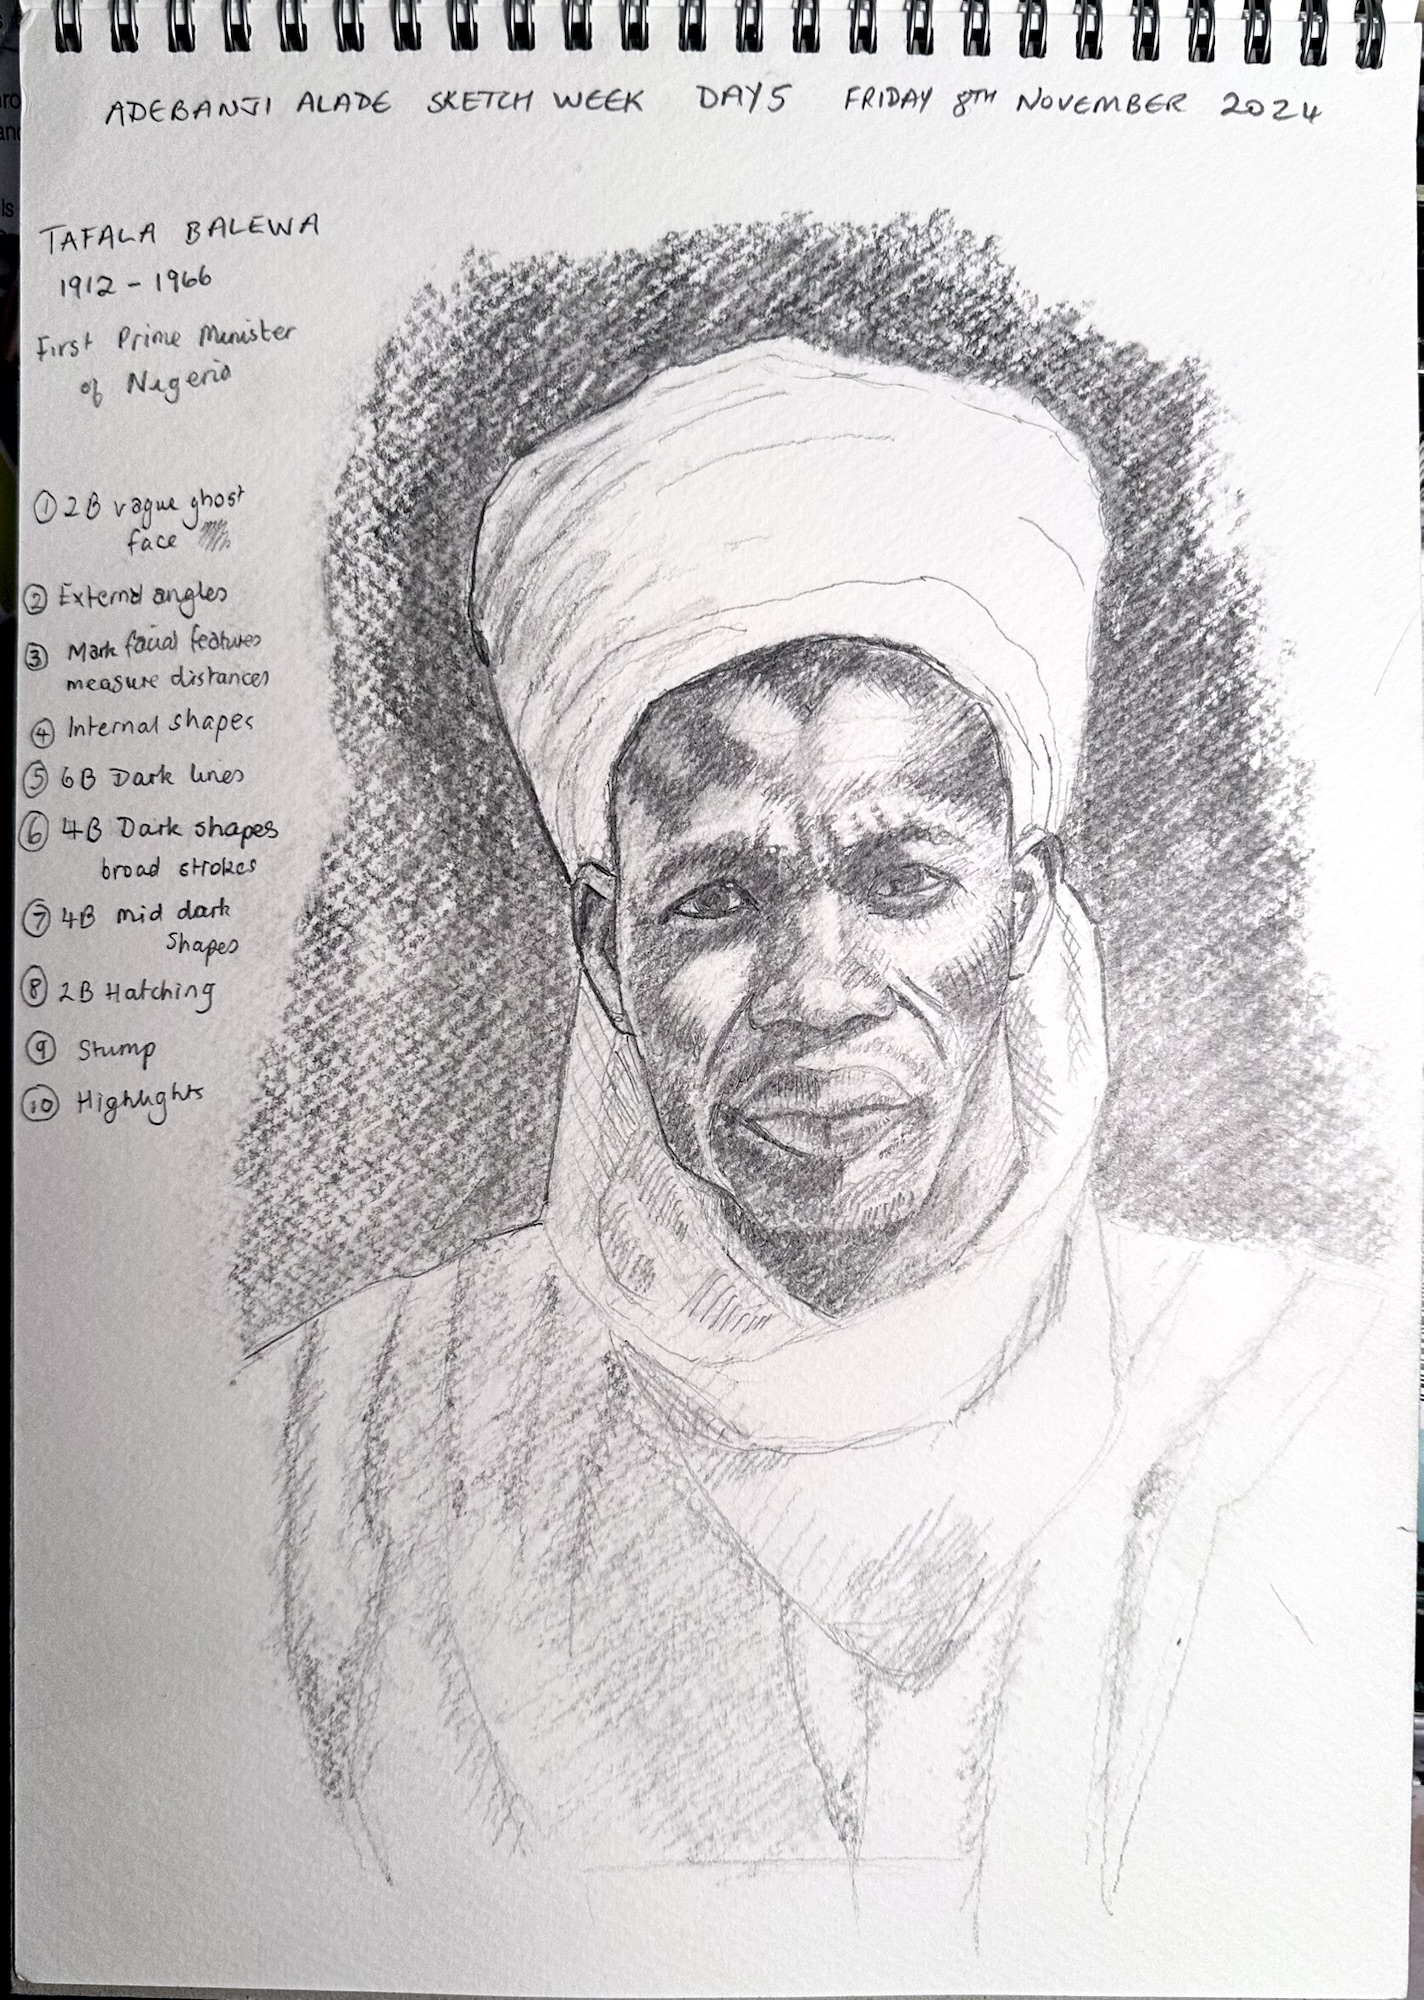 ADEBANJI ALADE SKETCH WEEK DAY 5 FRIDAY 8TH NOVEMBER 2024
TAFALA BALEWA
1912 - 1966
First Prime Minister
of Nigeria
① 2B vague ghost
face
② External angles
③ Mark facial features
measure distances
④ Internal shapes
⑤ 6B Dark lines
⑥ 4B Dark shapes
broad strokes
⑦ 4B mid dark
shapes
⑧ 2B Hatching
⑨ Stump
⑩ Highlights